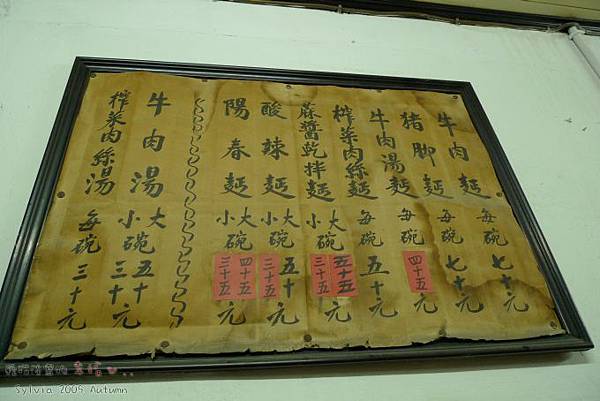 牛肉麵 每碗 七十元
猪脚麵 每碗 七十元
牛肉湯麵 每碗 四十五元
榨菜肉絲麵 每碗 五十元
蔴醬乾拌麵 大小碗 五十五 三十五 元
酸辣麵 大小碗 五十 三十五 元
陽春麵 大小碗 四十五 三十五 元
牛肉湯 大小碗 五十 三十 元
榨菜肉絲湯 每碗 三十元
Sylvia 2009 Autumn